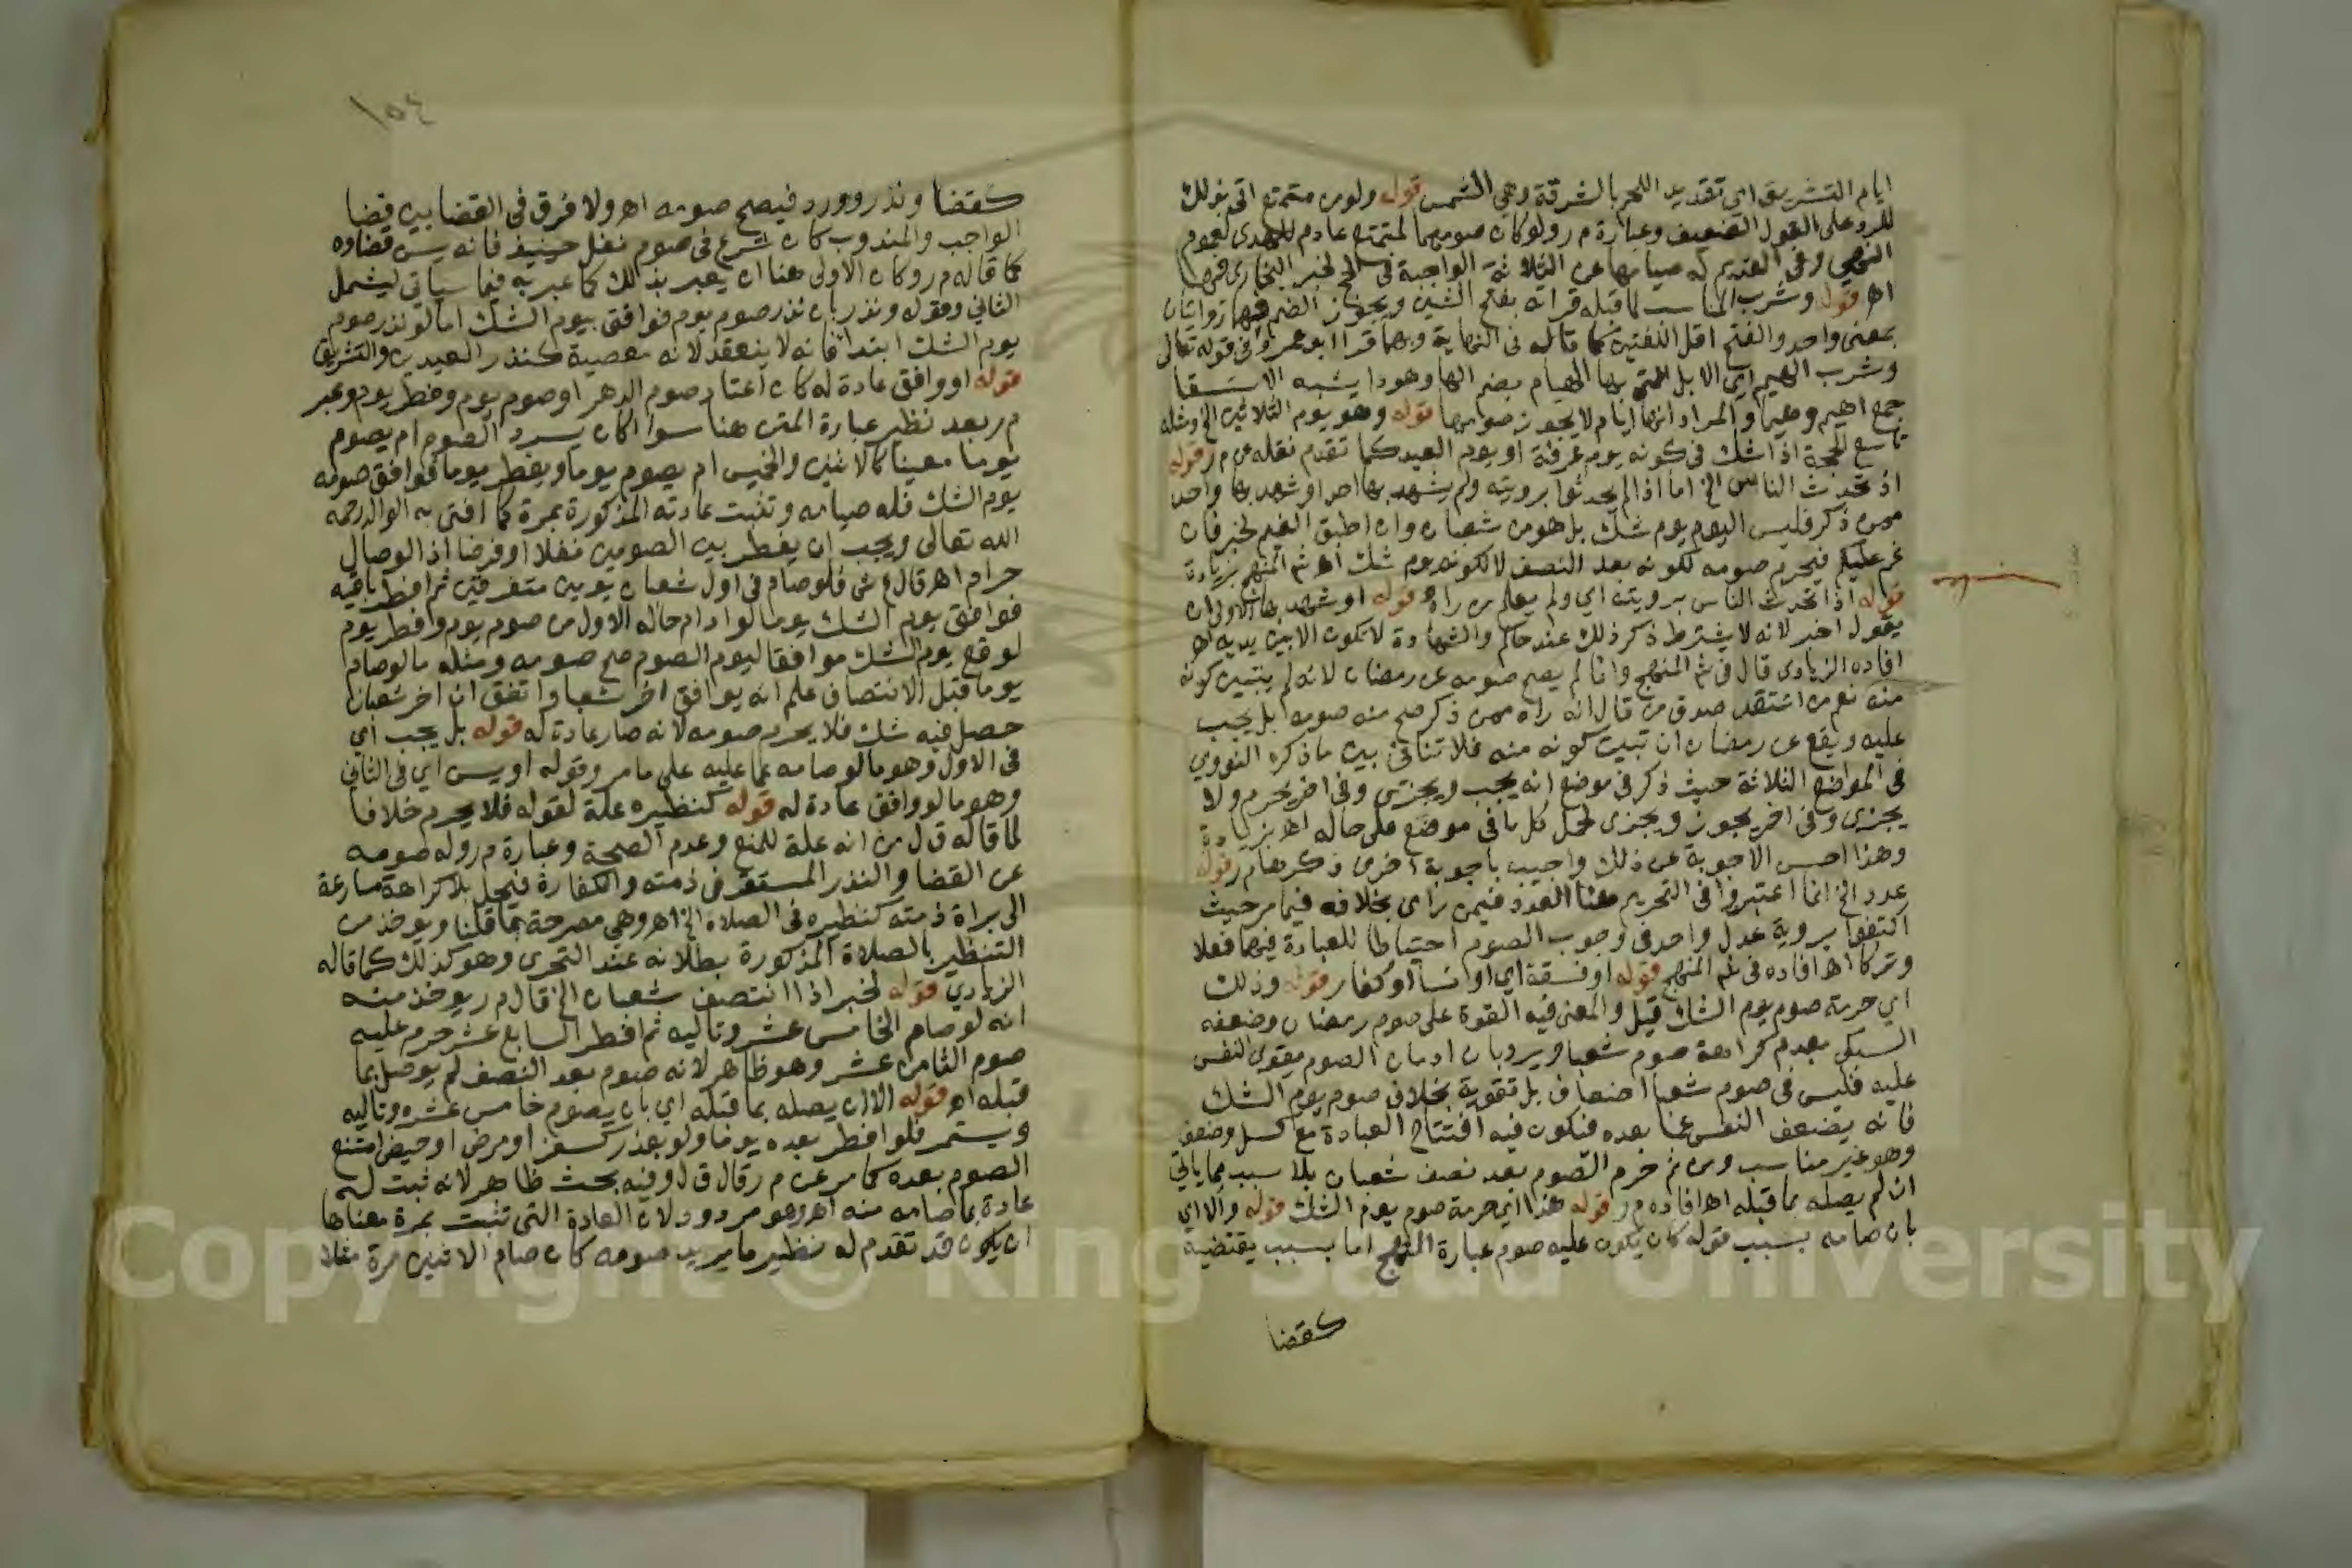 ايام التشريق اي تقديد اللحم بالشرقة وهي الشمس قوله ولو من متمتع اتى بذلك
للرد على القول الضعيف وعبارة م ر ولو كان صومهما لمتمتع عادم للهدى لعموم
النهي وفي القديم له صيامها عن الثلاثة الواجبة في الحج لخبر البخاري فيها
اهـ قوله وشرب المناسب لما قبله قراته بفتح الشين ويجوز الضم فهما روايتان
بمعنى واحد والفتح اقل اللغتين كما قاله في النهاية وبهما قرا ابو عمرو في قوله تعالى
وشرب الهيم اي الابل التي بها الهيام بضم الها وهو دا يشبه الاستسقا
جمع اهيم وهيما والمراد انها ايام لا يجوز صومها قوله وهو يوم الثلاثين الخ ومثله
تاسع الحجة اذا شك في كونه يوم عرفة او يوم العيد كما تقدم نقله عن م ر قوله
اذ تحدث الناس الخ اما اذا لم يحدثوا برويته ولم يشهد بها احد او شهد بها واحد
ممن ذكر فليس اليوم يوم شك بل هو من شعبان وان اطبق الغيم لخبر فان
غم عليكم فيحرم صومه لكونه بعد النصف لا لكونه يوم شك اهـ شم المنهج بزيادة
قوله اذا تحدث الناس برويته اي ولم يعلم من راه قوله او شهد بها الاولى ان
يقول اخبر لانه لا يشترط ذكر ذلك عند حاكم والشهادة لا تكون الا بين يديه اهـ
افاده الزيادي قال في شم المنهج وانما لم يصح صومه عن رمضان لانه لم يتبين كونه
منه نعم من اعتقد صدق من قال انه راه ممن ذكر صح منه صومه بل يجب
عليه ويقع عن رمضان ان تبين كونه منه فلا تنافي بين ما ذكره النووي
في المواضع الثلاثة حيث ذكر في موضع انه يجب ويجزي وفي اخر يحرم ولا
يجزي وفي اخر يجوز ويجزي لحمل كل ما في موضع على حاله اهـ بزيادة
وهذا احسن الاجوبة عن ذلك واجيب باجوبة اخرى ذكرها م ر قوله
عدد الخ انما اعتبروا في التحريم هنا العدد فيمن راى بخلافه فيما مر حيث
اكتفوا بروية عدل واحد في وجوب الصوم احتياطا للعبادة فيهما فعلا
وتركا اهـ افاده في شم المنهج قوله او فسقة اي او نسا او كفار قوله وذلك
اي حرمة صوم يوم الشك قيل والمعنى فيه القوة على صوم رمضان وضعفه
السبكي بعدم كراهة صوم شعبان ويرد بان ادمان الصوم يقوي النفس
عليه فليس في صوم شعبان اضعاف بل تقوية بخلاف صوم يوم الشك
فانه يضعف النفس عما بعده فتكون فيه افتتاح العبادة مع كسل وضعف
وهو غير مناسب ومن ثم حرم الصوم بعد نصف شعبان بلا سبب مما ياتي
ان لم يصله بما قبله اهـ افاده م ر قوله هذا اي حرمة صوم يوم الشك قوله والا اي
بان صامه بسبب قوله كان يكون عليه صوم عبارة المنهج اما بسبب يقتضيه
كقضا
١٥٤
كقضا ونذر وورد فيصح صومه اهـ ولا فرق في القضا بين قضا
الواجب والمندوب كان شرع في صوم نفل حينيذ فانه يسن قضاوه
كما قاله م ر وكان الاولى هنا ان يعبر بذلك كما عبر به فيما سياتي ليشمل
الثاني وقوله ونذر بان نذر صوم يوم فوافق بيوم الشك اما لو نذر صوم
يوم الشك ابتدا فانه لا ينعقد لانه معصية كنذر العيدين والتشريق
قوله او وافق عادة له كان اعتاد صوم الدهر او صوم يوم وفطر يوم وعبر
م ر بعد نظير عبارة المتن هنا سوا اكان يسرد الصوم ام يصوم
يوما معينا كالاثنين والخميس ام يصوم يوما ويفطر يوما فوافق صومه
يوم الشك فله صيامه وتثبت عادته المذكورة بمرة كما افتى به الوالد رحمه
الله تعالى ويجب ان يفطر بين الصومين نفلا او فرضا اذ الوصال
حرام اهـ قال ع ش فلو صام في اول شعبان يومين متفرقين ثم افطر باقيه
فوافق يوم الشك يوما لو دام حاله الاول من صوم يوم وافطر يوم
لوقع يوم الشك موافقا ليوم الصوم صح صومه ومثله ما لو صام
يوما قبل الانتصاف علم انه يوافق اخر شعبان واتفق ان اخر شعبان
حصل فيه شك فلا يحرم صومه لانه صار عادة له قوله بل يجب اي
في الاول وهو ما لو صامه عما عليه على ما مر وقوله او يسن اي في الثاني
وهو ما لو وافق عادة له قوله كنظيره علة لقوله فلا يحرم خلافا
لما قاله ق ل من انه علة للمنع وعدم الصحة وعبارة م ر وله صومه
عن القضا والنذر المستقر في ذمته والكفارة فيحل بلا كراهة مسارعة
الى براة ذمته كنظيره في الصلاة الخ اهـ وهي مصرحة بما قلنا ويوخذ من
التنظير بالصلاة المذكورة بطلانه عند التحري وهو كذلك كما قاله
الزيادي قوله لخبر اذا انتصف شعبان الخ قال م ر يوخذ منه
انه لو صام الخامس عشر وتاليه ثم افطر السابع عشر حرم عليه
صوم الثامن عشر وهو ظاهر لانه صوم بعد النصف لم يوصل بما
قبله اهـ قوله الا ان يصله بما قبله اي بان يصوم خامس عشره وتاليه
ويستمر فلو افطر بعده يوما ولو بعذر كسفر او مرض او حيض امتنع
الصوم بعده كما مر عن م ر قال ق ل وفيه بحث ظاهر لانه ثبت له
عادة بما صامه منه اهـ وهو مردود لان العادة التي تثبت بمرة معناها
ان يكون قد تقدم له نظير ما يريد صومه كان صام الاثنين مرة مثلا
Copyright © King Saud University